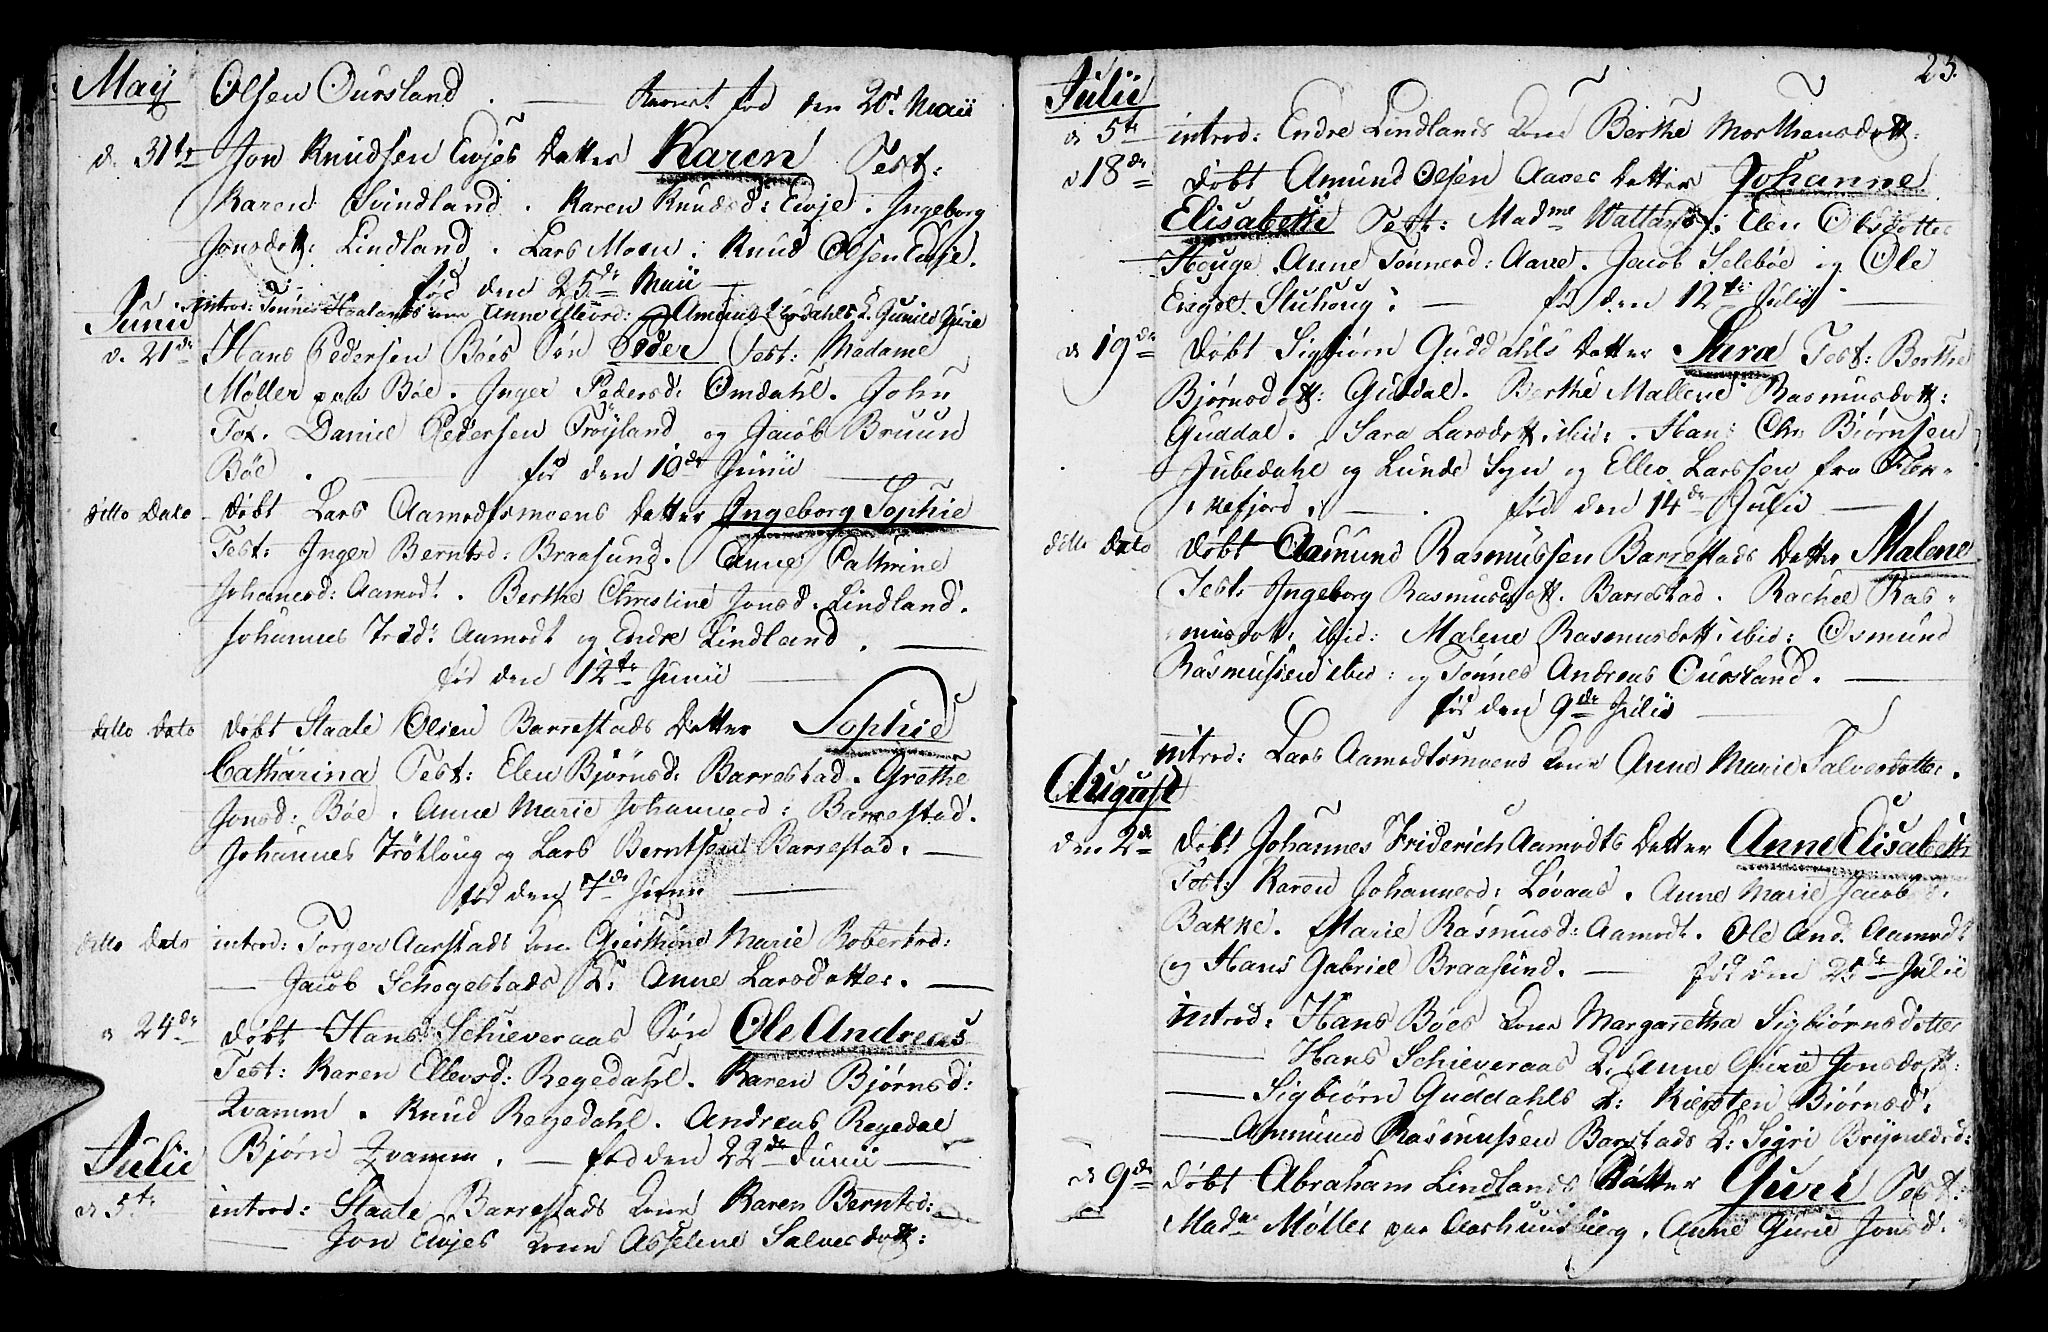 Maij
Olsen Oursland . — Barnet fød den 20d Maii
d. 31te Jon Knudsen Evjes Datter Karen Test:
Karen Svindland . Karen Knudsd: Evje . Ingeborg
Jonsdatt: Lindland . Lars Moen . Knud Olsen Evje .
fød den 25de Maii —
Junii
introd: Tønnes Kone Anne : Gunild Gurie
d. 21de Hans Pedersen Böes Søn Peder Test: Madame
Møller paa Böe . Inger Pedersd: Omdahl . John
Fox . Daniel Pedersen Fröyland og Jacob Bruun
Böe . — fød den 10de Junii —
ditto Dato døbt Lars Aamodtsmoens Datter Ingeborg Sophie
Test: Inger Berntsd: Braasund . Anne Cathrine
Johannesd: Aamodt . Berthe Christine Jonsd. Lindland .
Johannes Frid: Aamodt og Endre Lindland . —
fød den 12te Junii —
ditto Dato døbt Staale Olsen Barrestads Datter Sophie
Catharina Test: Elen Bjørnsd: Barrestad . Grethe
Jonsd: Böe . Anne Marie Johannesd: Barrestad .
Johannes og Lars Berntsen Barrestad . —
fød den 7de Junii —
ditto Dato introd: Torger Aarstads Kone Marie Robertsd:
— Jacob Schogestads K: Anne Larsdatter . —
d 24de døbt Hans Schieveraas Søn Ole Andreas
Test: Karen Ellevsd: Regedahl . Karen Bjørnsd:
Qvamm . Knud Regedahl . Andreas Regedal
Bjørn Qvamm . — fød den 22de Junii —
Julii
d 5te introd: Staale Barrestads Kone Karen Berntsd:
— Jon Evjes Kone Asselene Salvesdatt:
23.
Julii
d 5te introd: Endre Lindlands Kone Berthe Morthensdatt:
d 18de døbt Amund Olsen Aaves Datter Johanne
Elisabeth Test: Madme : Elen Olsdatter
Houge . Anne Tønnesd: Aave . Jacob Selebøe og Ole
Engel. Stuhoug . — fød den 12te Julii —
d 19de døbt Sigbiørn Guddahls Datter Sara Test: Berthe
Bjørnsdatt: Guddal . Berthe Mallene Rasmusdatt:
Guddal . Sara Larsdatt: ibid: . Han: Chr. Biørnsen
Jubedahl og Lunde Sgn og Ellev Larssen fra Flek-
kefjord . — . fød den 14de Julii —
ditto Dato døbt Aasmund Rasmussen Barrestads Datter Malene
Test: Ingeborg Rasmusdatt. Barrestad . Rachel Ras-
musdatt: ibid: Malene Rasmusdatt: ibid: Osmund
Rasmussen ibid: og Tønnes Andreas Oursland . —
fød den 9de Julii —
introd: Lars Aamodtsmoens Kone Anne Marie Salvesdatter .
August
den 2de døbt Johannes Friderich Aamodts Datter Anne Elisabeth
Test: Karen Johannesd: Løvaas . Anne Marie Jacobsd:
Bakke . Marie Rasmusd: Aamodt . Ole And. Aamodt
og Hans Gabriel Braasund . — fød den 25de Julii
introd: Hans Böes Kone Margaretha Sigbiørnsdatter
— Hans Schieveraas K. Anne Gurie Jonsdatt:
— Sigbiørn Guddahls K: Kiersten Biørnsd:
— Aamund Rasmussen Barstads K: Sigri Brynildsd:
d 9de døbt Abraham Lindlands Datter Guri Test:
Made Møller paa . Anne Gurie Jonsd: